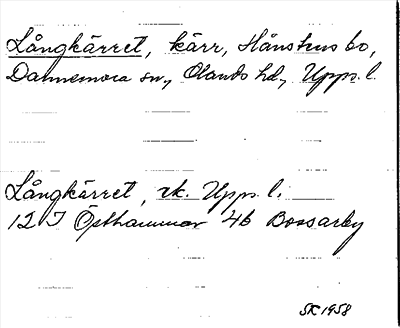 Långkärret, kärr, Hånshus bo,
Dannemora sn, Olands hd, Upps. l.
Långkärret, rk. Upps. l.
12 I Östhammar 4b Boosarby
SK 1958